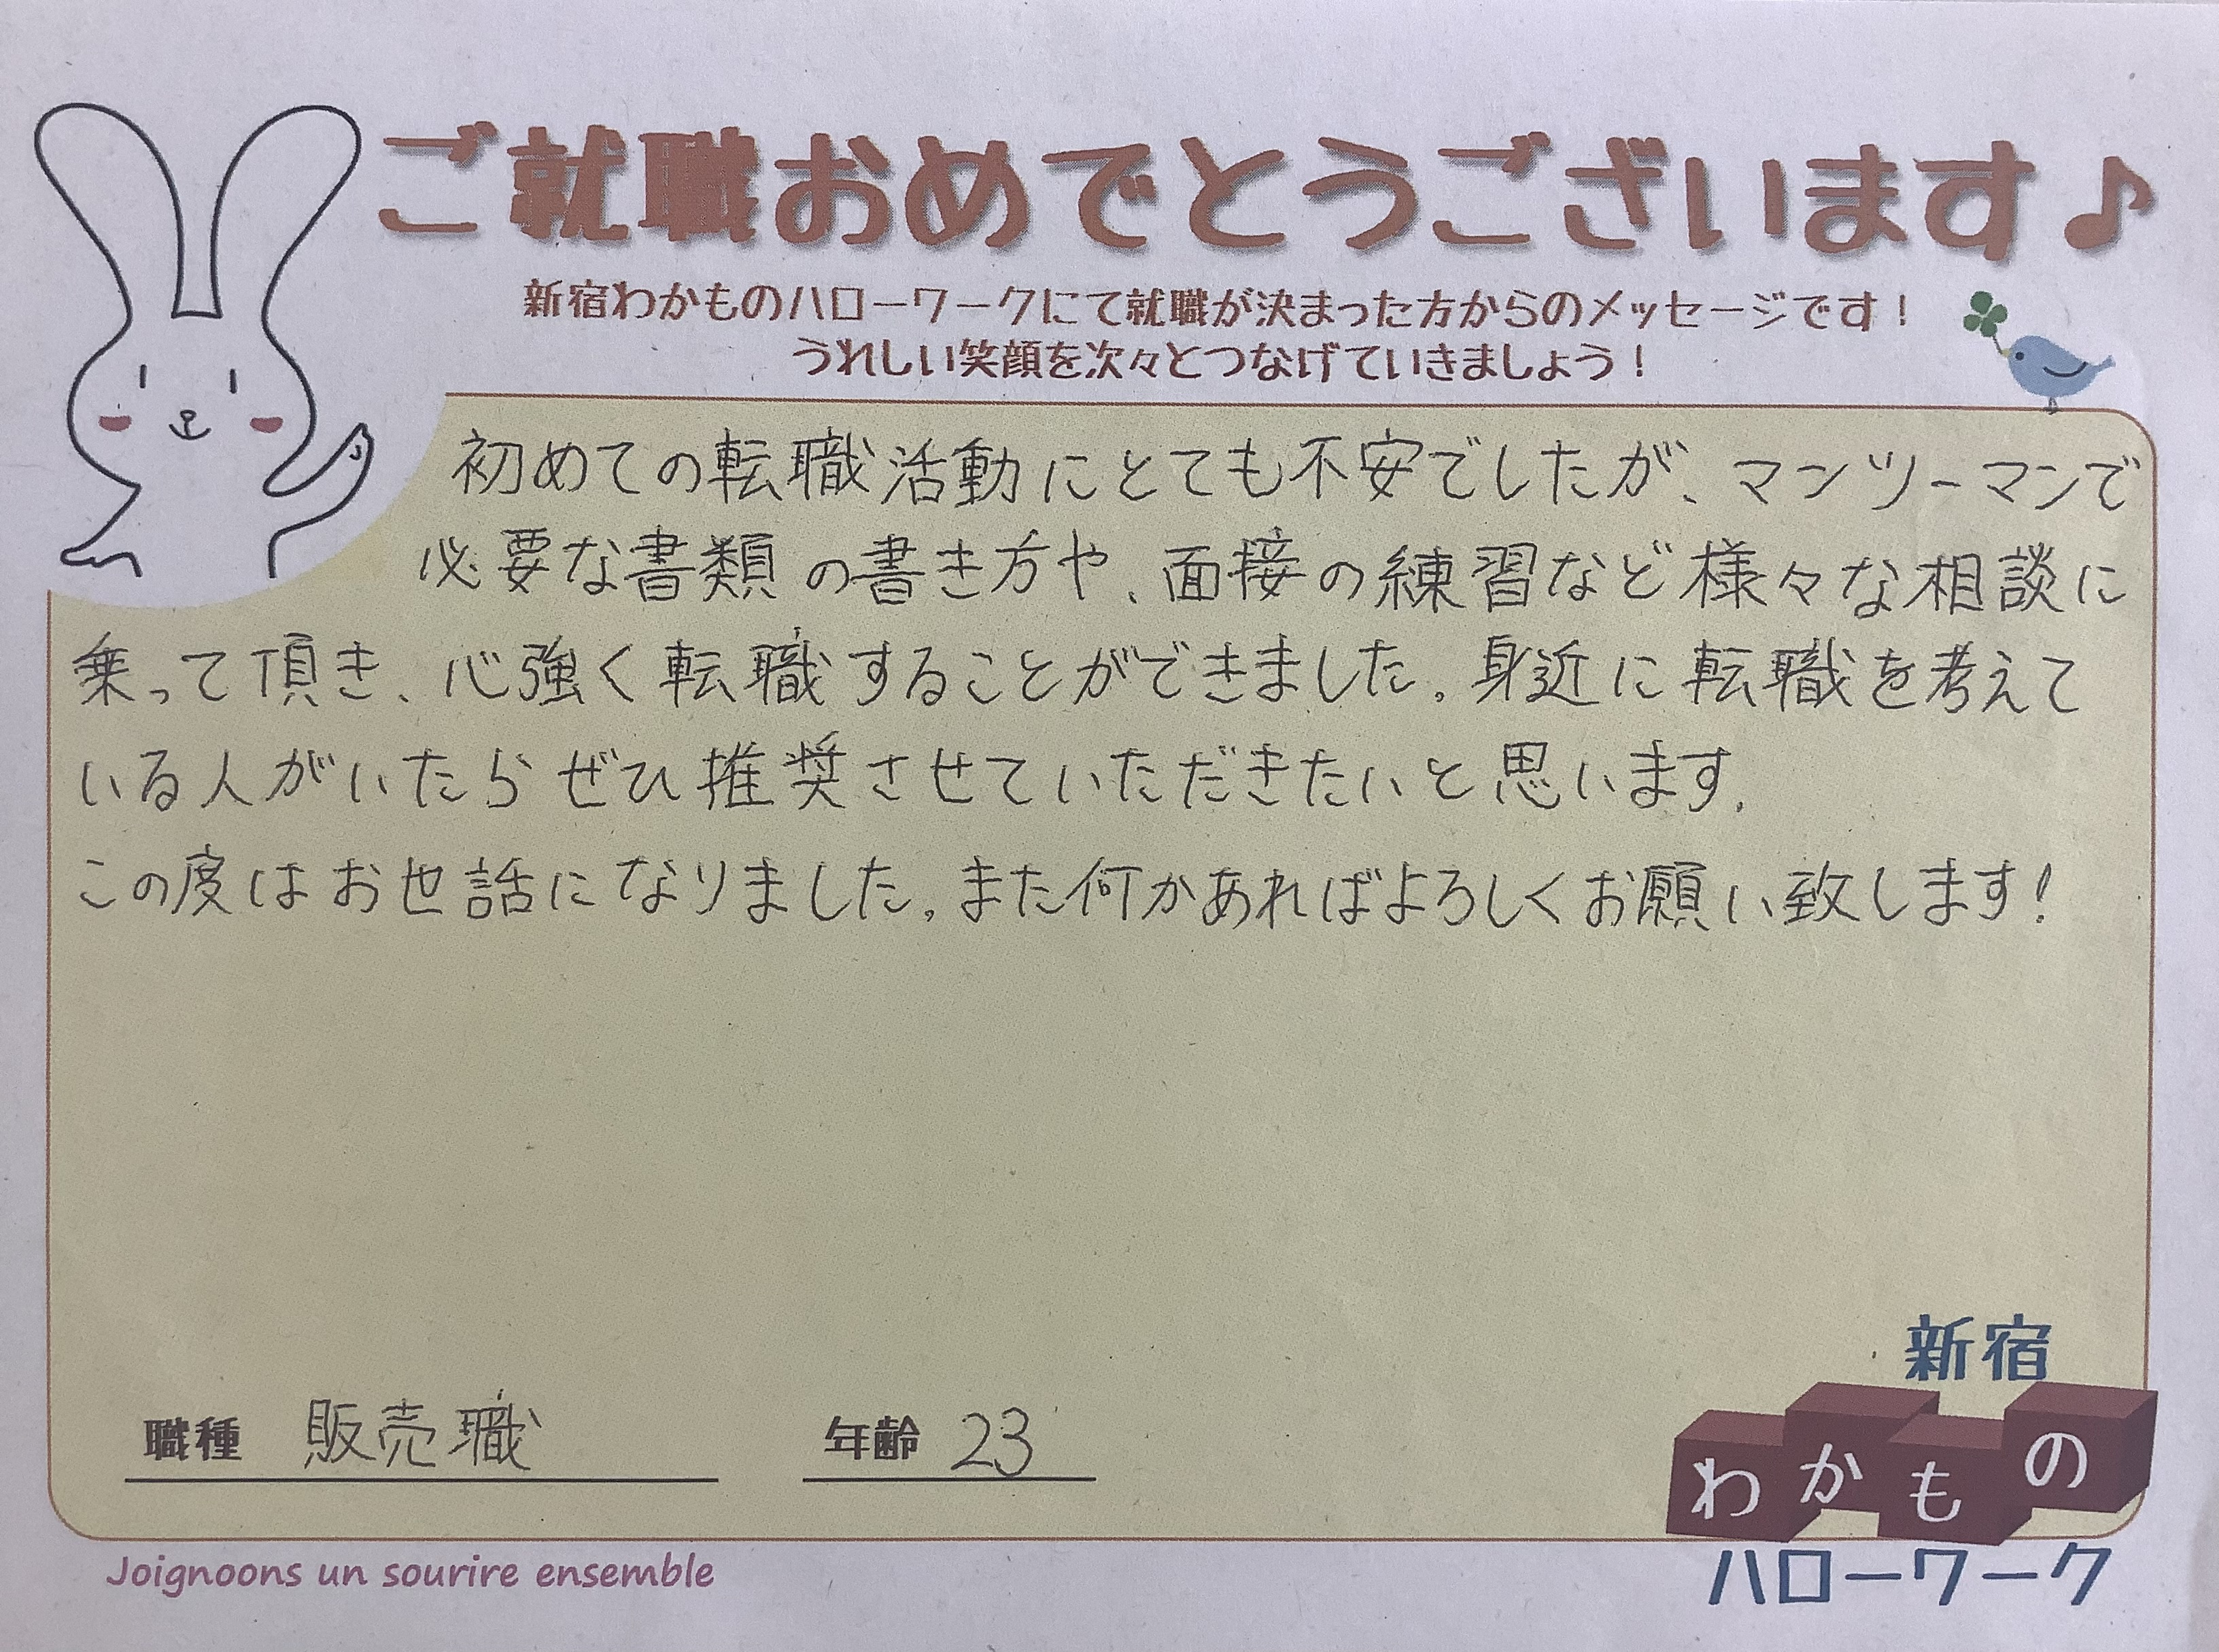 ご就職おめでとうございます♪
新宿わかものハローワークにて就職が決まった方からのメッセージです！
うれしい笑顔を次々とつなげていきましょう！
初めての転職活動にとても不安でしたが、マンツーマンで
必要な書類の書き方や、面接の練習など様々な相談に
乗って頂き、心強く転職することができました。身近に転職を考えて
いる人がいたらぜひ推奨させていただきたいと思います。
この度はお世話になりました。また何かあればよろしくお願い致します！
職種 販売職 年齢 23
新宿
わかもの
ハローワーク
Joignoons un sourire ensemble